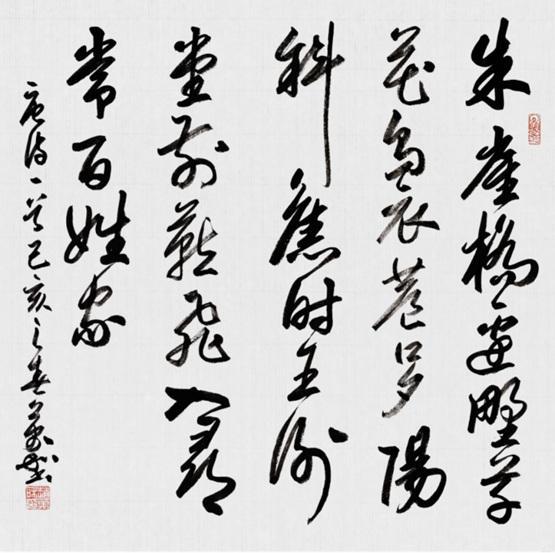 朱雀橋邊野草
花烏衣巷口夕陽
斜舊時王謝
堂前燕飛入尋
常百姓家
唐詩一首己亥之春